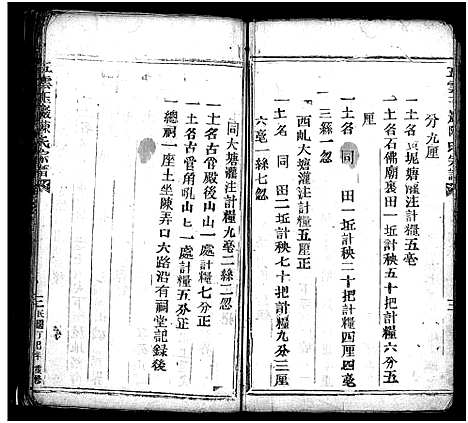 五雲王巖陳氏宗譜
分九厘
一土名泥塘灌注計糧五毫
一土名石佛廟裏田一坵計秧五十把計糧六分五
厘
一土名 同 田一坵計秧二十把計糧四厘四毫
三絲一忽
西虬大塘灌注計糧五厘正
一土名 同 田一坵計秧七十把計糧九分三厘
六毫一絲七忽
同大塘灌注計糧九毫二絲二忽
一土名古管殿後山山一處計糧七分正
一土名古管角吼山山一處計糧五分正
一總祠一座土坐陳弄口大路沿有祠堂記錄後
五雲王巖陳氏宗譜